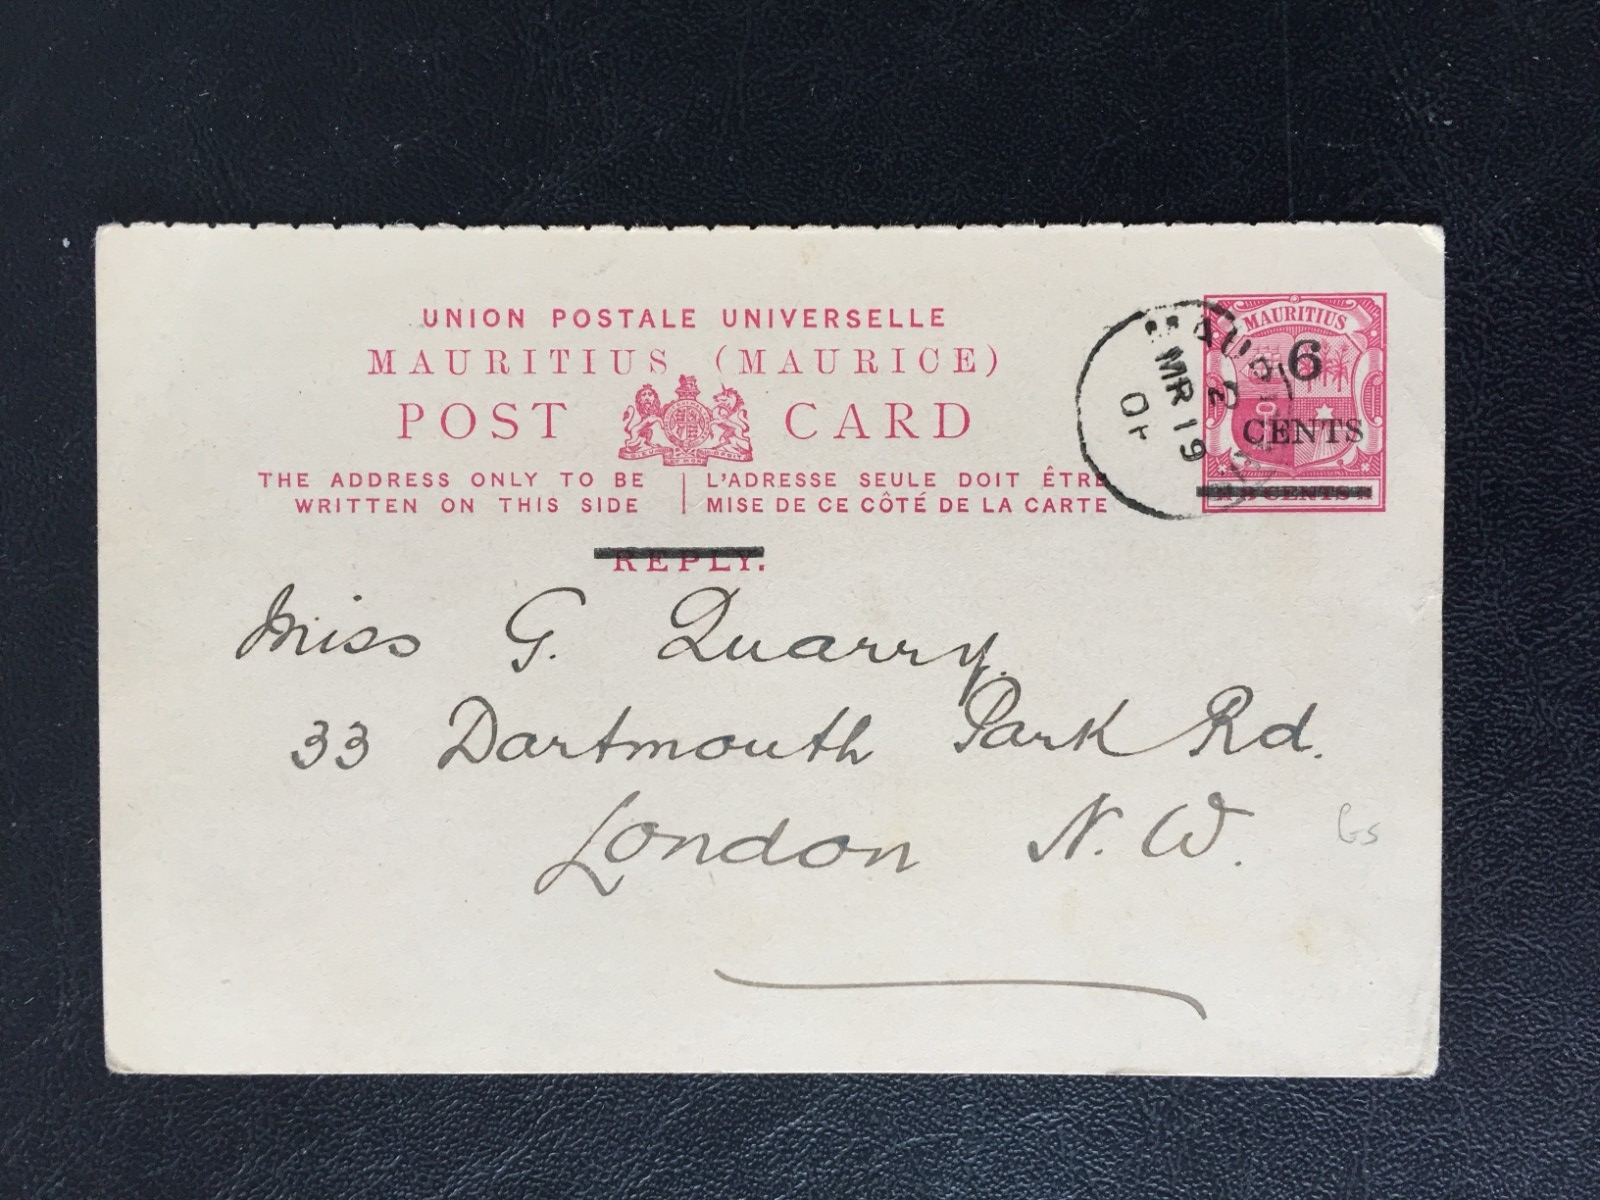 UNION POSTALE UNIVERSELLE
MAURITIUS (MAURICE)
POST CARD
THE ADDRESS ONLY TO BE
WRITTEN ON THIS SIDE
L'ADRESSE SEULE DOIT ÊTRE
MISE DE CE CÔTÉ DE LA CARTE
REPLY.
MAURITIUS
6
CENTS
MAURITIUS
2
MR 19
01
Miss G. Quarry.
33 Dartmouth Park Rd.
London N. W.